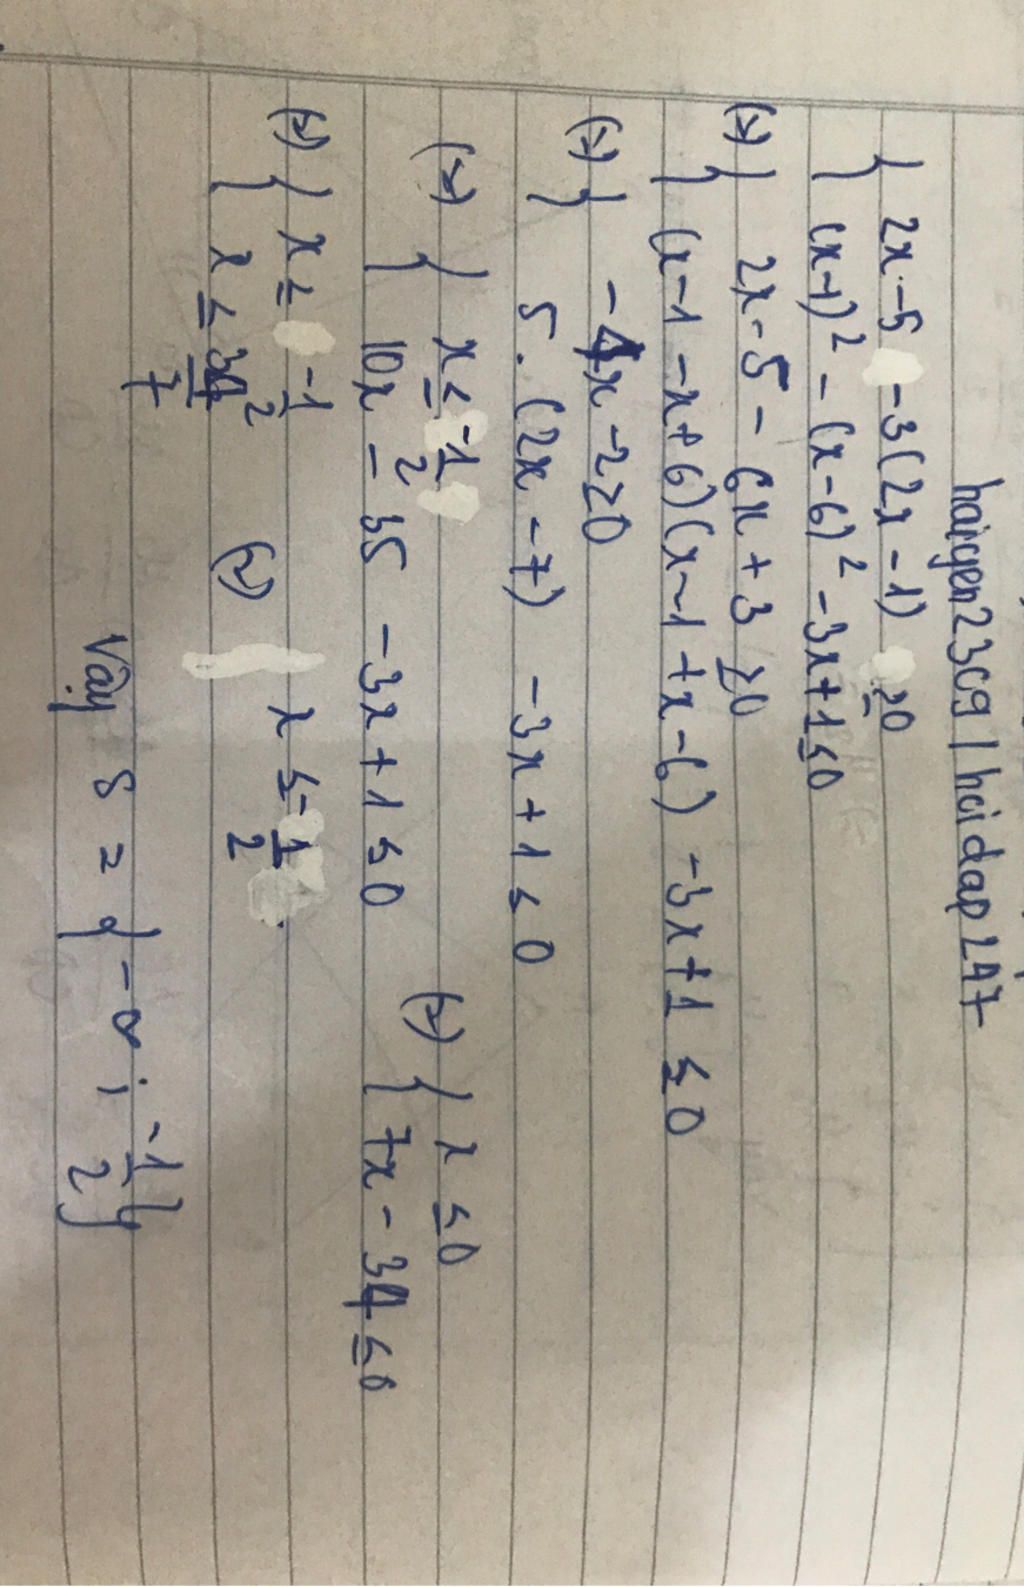 haiyen23c9 | hoidap247
{ 2x-5 -3(2x-1) ≥0
{ (x-1)² - (x-6)² -3x+1≤0
(=) { 2x-5 - 6x+3 ≥0
{ (x-1-x+6)(x-1+x-6) -3x+1 ≤0
(=) { -4x-2≥0
{ 5.(2x-7) -3x+1 ≤0
(=) { x≤ -1/2 (=) { x ≤0
{ 10x - 35 -3x+1 ≤0 { 7x-34≤0
(=) { x≤ -1/2 (=) x ≤ -1/2
{ x ≤ 34/7
Vậy S = { -∞ ; -1/2 }